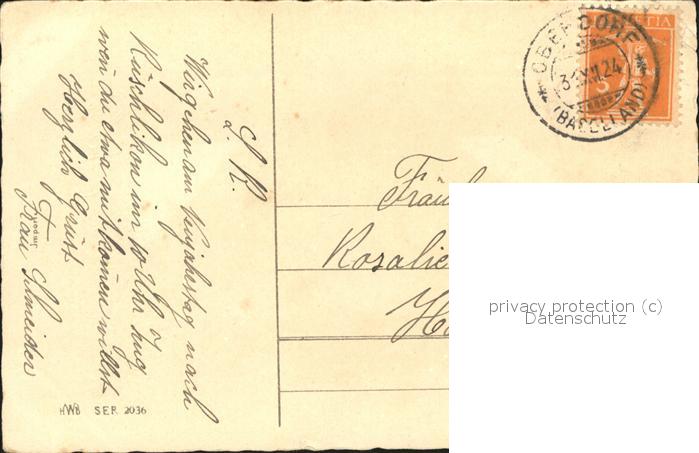 L. R.
Wir gehen am Neujahrstag nach
Rüschlikon im 10 Uhr Zug
wen du etwa mit komen willst
Herzlich Grüst
Frau Schneider
Import
HWB SER 2036
OBERDORF
31.XII.24
(BASELLAND)
HELVETIA
5
Rosalie
privacy protection (c)
Datenschutz